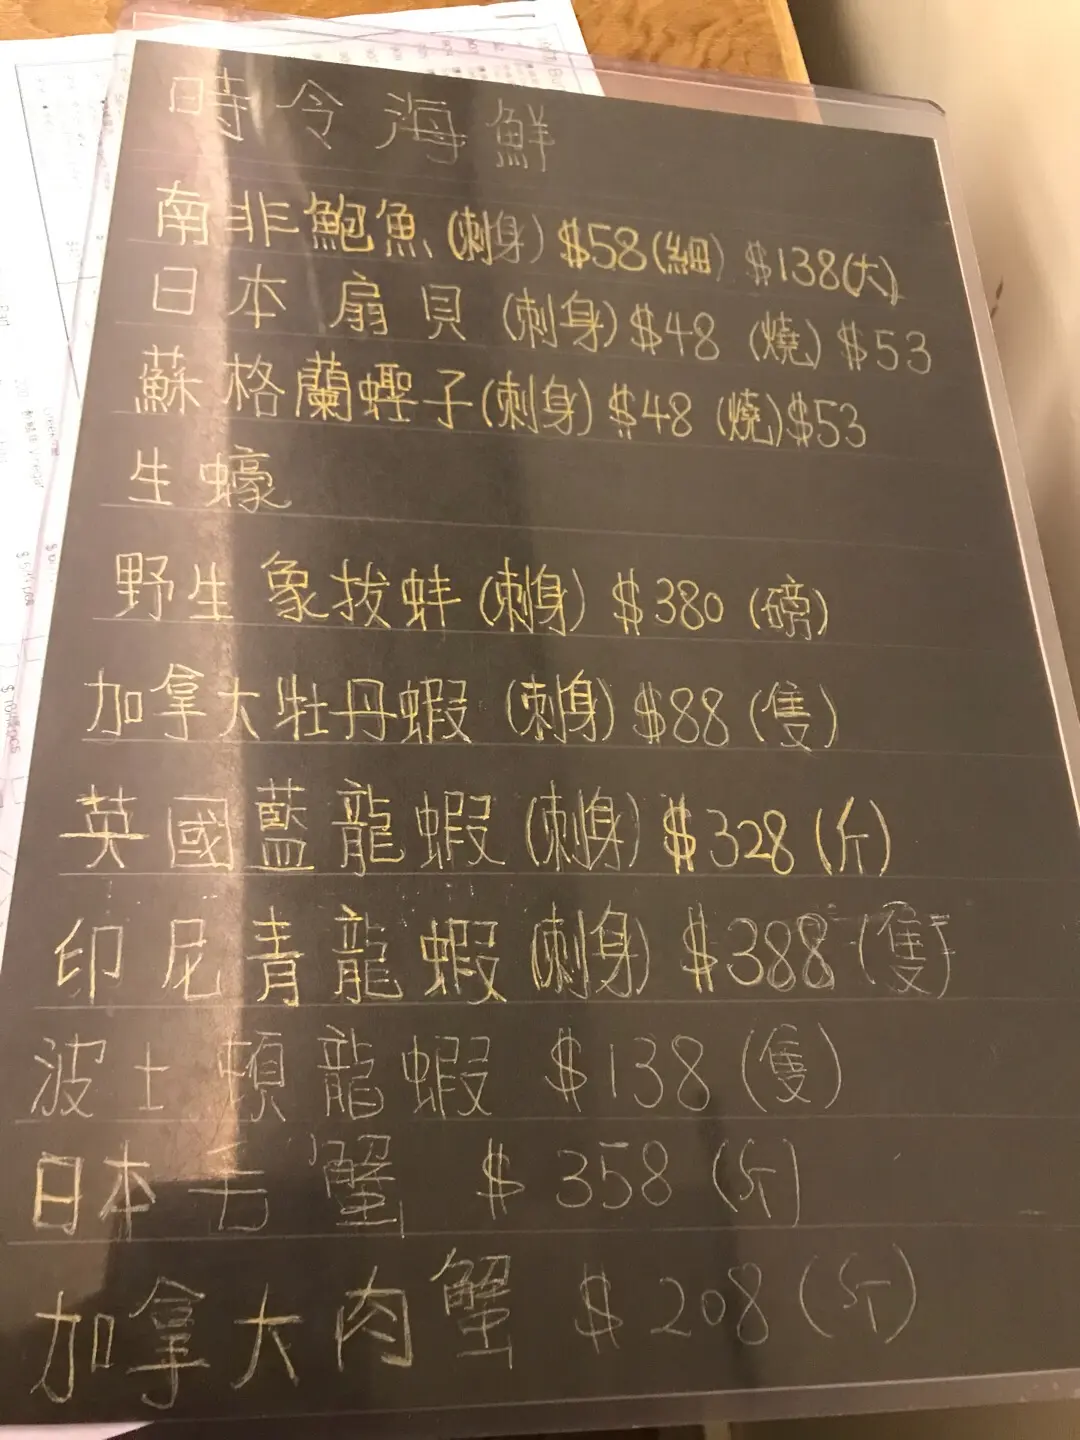 時令海鮮
南非鮑魚(刺身) $58(細) $138(大)
日本扇貝 (刺身) $48 (燒) $53
蘇格蘭蟶子(刺身) $48 (燒)$53
生蠔
野生象拔蚌(刺身) $380 (磅)
加拿大牡丹蝦 (刺身) $88 (隻)
英國藍龍蝦 (刺身) $328 (斤)
印尼青龍蝦 (刺身) $388 (隻)
波士頓龍蝦 $138 (隻)
日本毛蟹 $358 (斤)
加拿大肉蟹 $208 (斤)